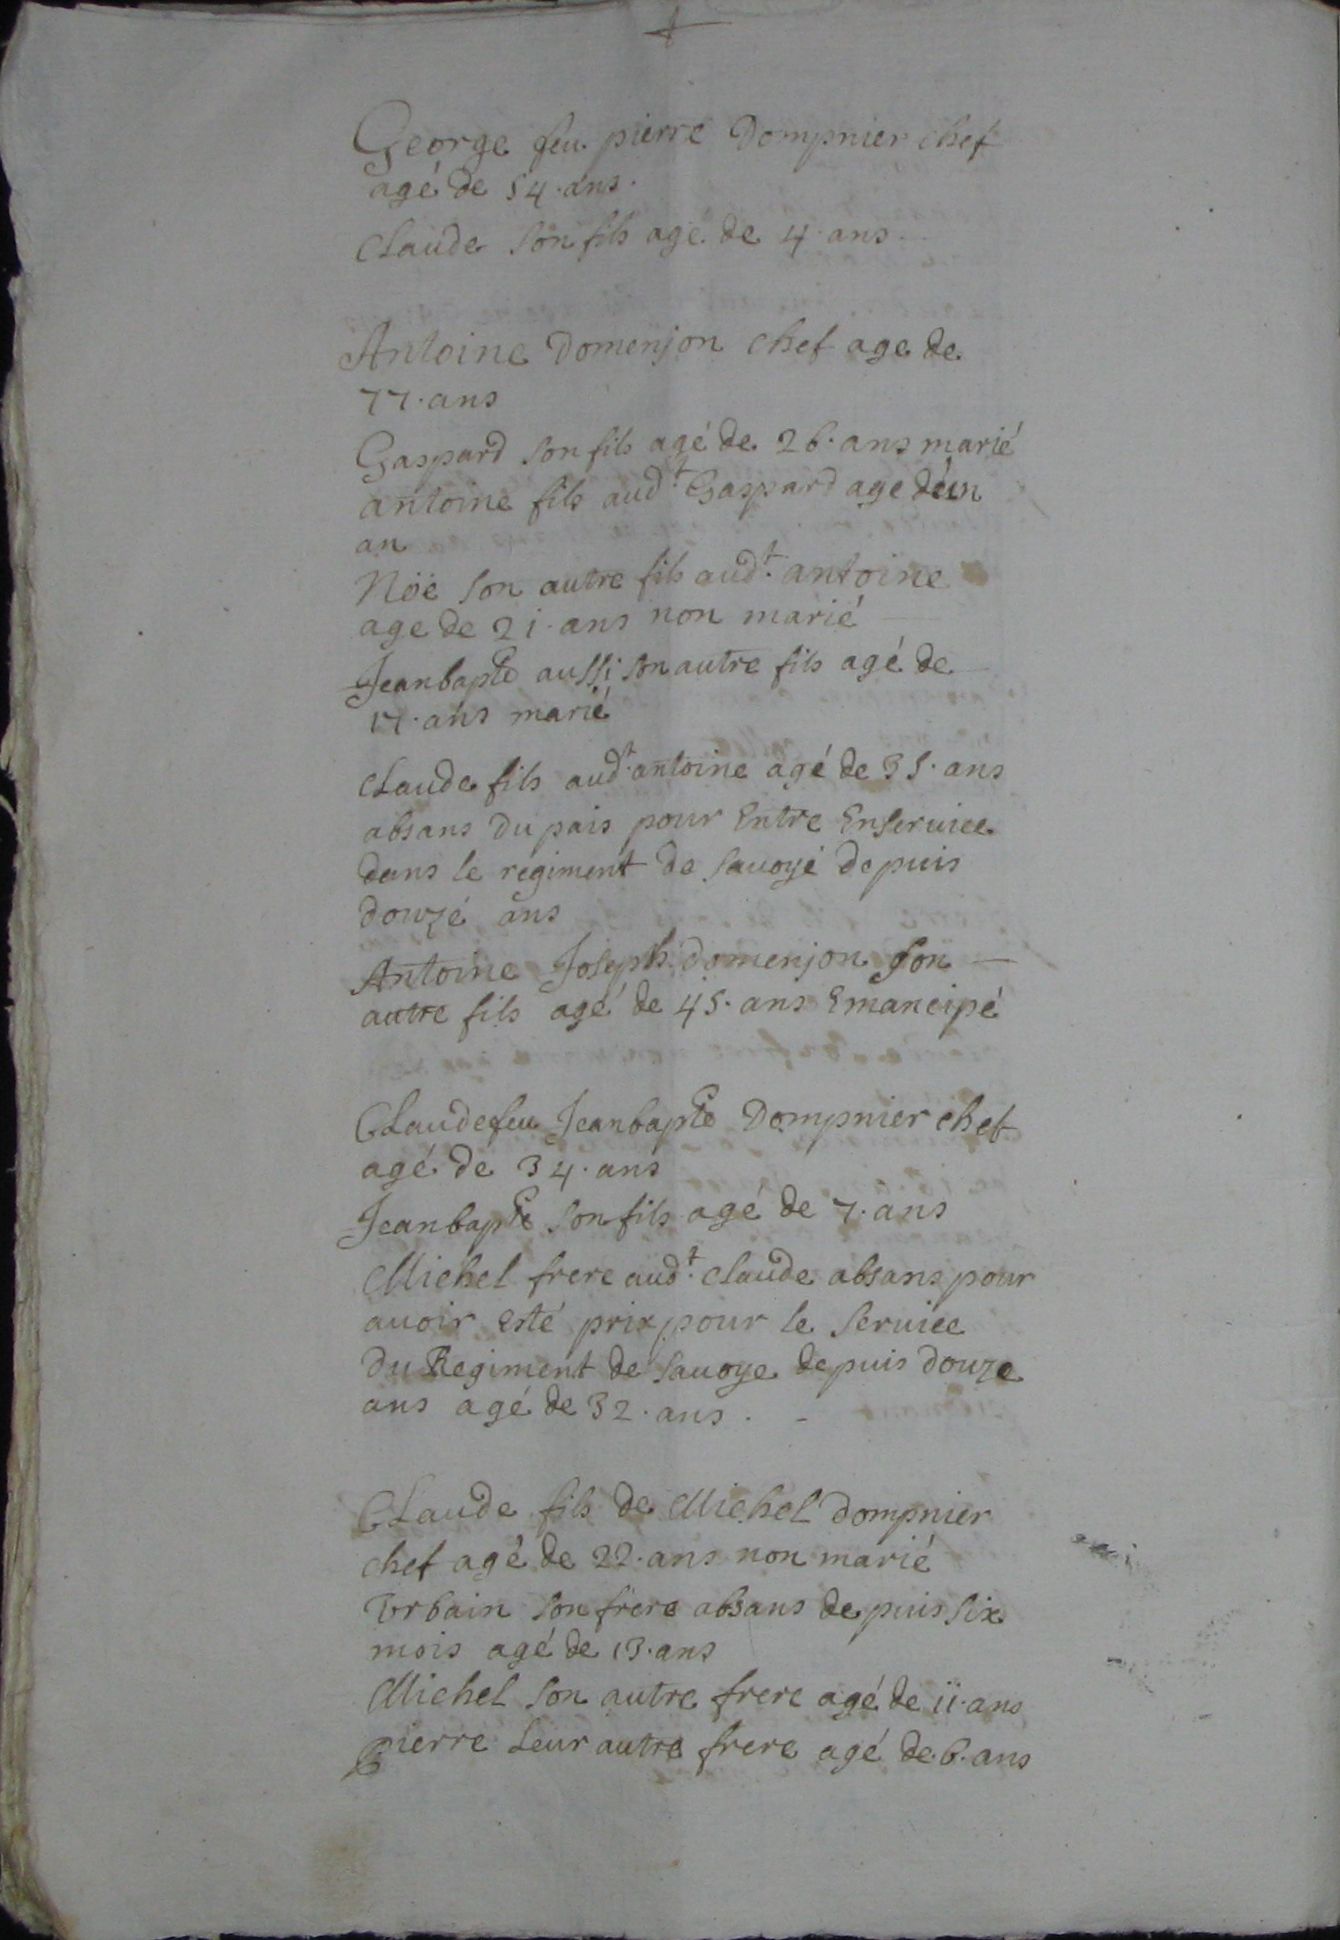 George feu pierre Dompnier chef
agé de 54. ans.
Claude son fils agé de 4. ans
Antoine Domenjon chef age de
77. ans
Gaspard son fils agé de 26. ans marié
antoine fils aud.t Gaspard age déun
an
Nöe son autre fils aud.t antoine
age de 21. ans non marié
Jeanbapte aussi son autre fils agé de
17. ans marié
Claude fils aud.t antoine agé de 35. ans
absans du pais pour Entre Enseruice
dans le regiment de sauoyé depuis
douzé ans
Antoine Joseph domenjon son
autre fils agé de 45. ans Emancipé
Claude feu Jeanbapte Dompnier chef
agé de 34. ans
Jeanbapte son fils agé de 7. ans
Michel frere aud.t claude absans pour
auoir esté prix pour le seruice
du Regiment de sauoye depuis douze
ans agé de 32. ans.
Claude fils de Michel dompnier
chef agé de 22. ans non marié
Vrbain son frere absans depuis six
mois agé de 13. ans
Michel son autre frere agé de 11. ans
pierre Leur autre frere agé de 6. ans